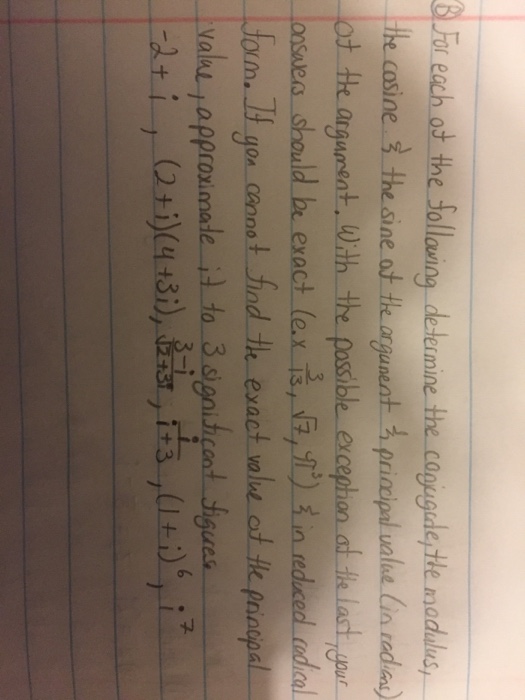 ⑧ For each of the following determine the conjugate, the modulus,
the cosine & the sine of the argument & principal value (in radians)
of the argument. With the possible exception of the last, your
answers should be exact (e.x 3/13, √7, 9π³) & in reduced radical
form. If you cannot find the exact value of the principal
value, approximate it to 3 significant figures
-2 + i, (2+i)(4+3i), (3-i)/(√2+3i), i/(i+3), (1+i)⁶, i⁷